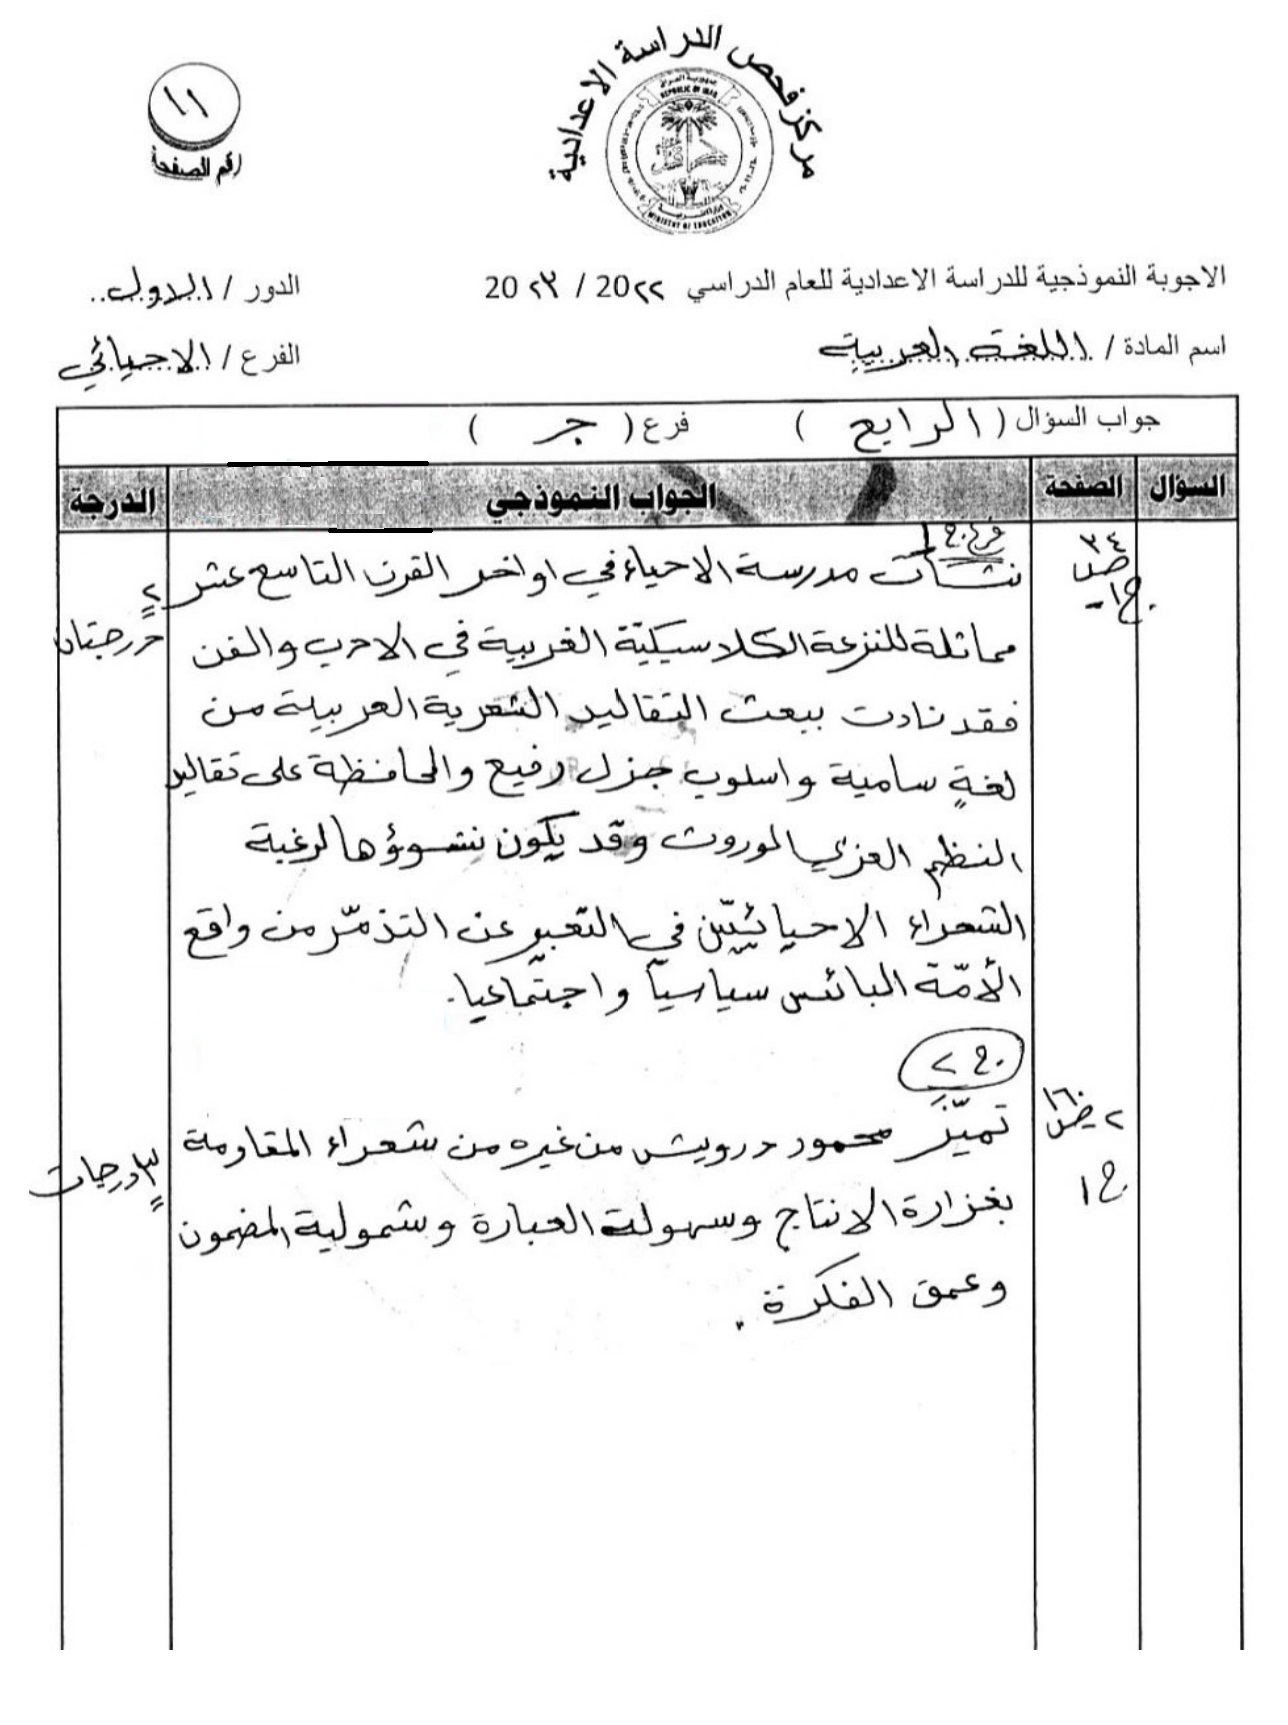 مركز فحص الدراسة الاعدادية
جمهورية العراق
REPUBLIC OF IRAQ
وزارة التربية
MINISTRY OF EDUCATION
١١
رقم الصفحة
الاجوبة النموذجية للدراسة الاعدادية للعام الدراسي 20٢٢ / 20٢٣
الدور / الاول
اسم المادة / اللغة العربية
الفرع / الاحيائي
جواب السؤال ( الرابع ) فرع ( جـ )
السؤال الصفحة الجواب النموذجي الدرجة
فرع ج ١
٣٤ ص
ج ١
نشأت مدرسة الاحياء في اواخر القرن التاسع عشر
٢ درجتان
مماثلة للنزعة الكلاسيكيّة الغربية في الادب والفن
فقد نادت ببعث التقاليد الشعرية العربية من
لغةٍ سامية واسلوب جزل رفيع والمحافظة على تقاليد
النظم العربي الموروث وقد يكون نشوؤها لرغبة
الشعراء الاحيائيّين في التعبير عن التذمّر من واقع
الأمّة البائس سياسياً واجتماعيا.
ج ٢
٢ ص ١٦٠
ج ١
تميّزَ محمود درويش من غيره من شعراء المقاومة
٣ درجات
بغزارة الانتاج وسهولة العبارة وشمولية المضمون
وعمق الفكرة .